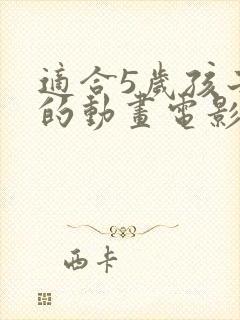 適合5歲孩子
的動畫電影
西卡